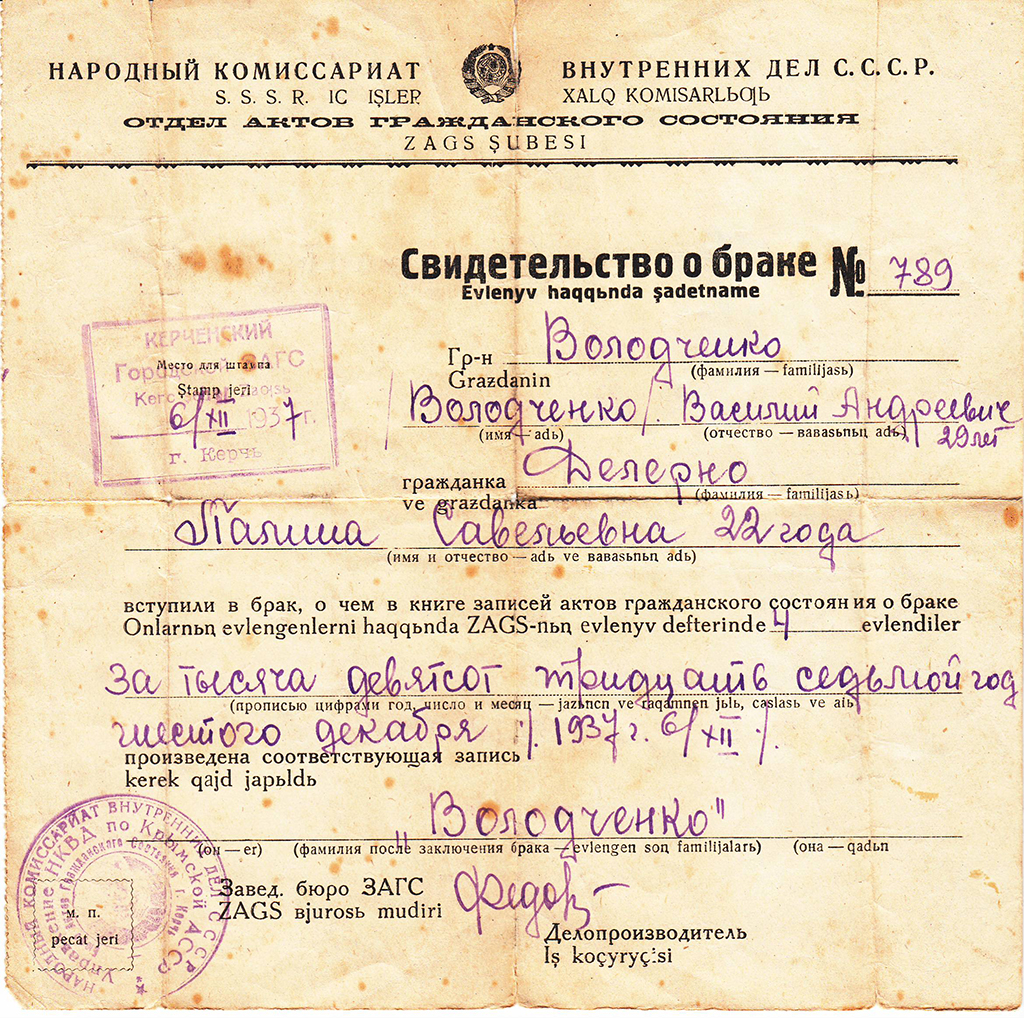 НАРОДНЫЙ КОМИССАРИАТ ВНУТРЕННИХ ДЕЛ С.С.С.Р.
S. S. S. R. IC IŞLER XALQ KOMISARLЬƢЬ
ОТДЕЛ АКТОВ ГРАЖДАНСКОГО СОСТОЯНИЯ
ZAGS ŞUBESI
Свидетельство о браке № 789
Evlenyv haqqьnda şadetname
КЕРЧЕНСКИЙ
Городской ЗАГС
Место для штампа
Ştamp jeri
6/XII 1937 г.
г. Керчь
Гр-н Володченко
Grazdanin (фамилия — familijasь)
/Володченко/. Василий Андреевич
(имя — adь) (отчество — вaвasьnьꞑ adь) 29 лет
гражданка Делерно
ve grazdanka (фамилия — familijasь)
Савельевна 22 года
(имя и отчество — adь ve вaвasьnьꞑ adь)
вступили в брак, о чем в книге записей актов гражданского состояния о браке
Onlarnьꞑ evlengenlerni haqqьnda ZAGS-nьꞑ evlenyv defterinde 4 evlendiler
За тысяча девятсот тридцать седьмой год
(прописью цифрами год, число и месяц — jazьncn ve raqamnen jьlь, caslasь ve aiь
шестого декабря /. 1937 г. 6/XII /.
произведена соответствующая запись
kerek qajd japьldь
„Володченко"
(он — er) (фамилия после заключения брака — evlengen soꞑ familijalarь) (она — qadьn
Завед. бюро ЗАГС
ZAGS вjurosь mudiri
Делопроизводитель
Iş koçyryçisi
НАРОДНЫЙ КОМИССАРИАТ ВНУТРЕННИХ ДЕЛ СССР
Управление НКВД по Крымской АССР
м. п.
pecat jeri